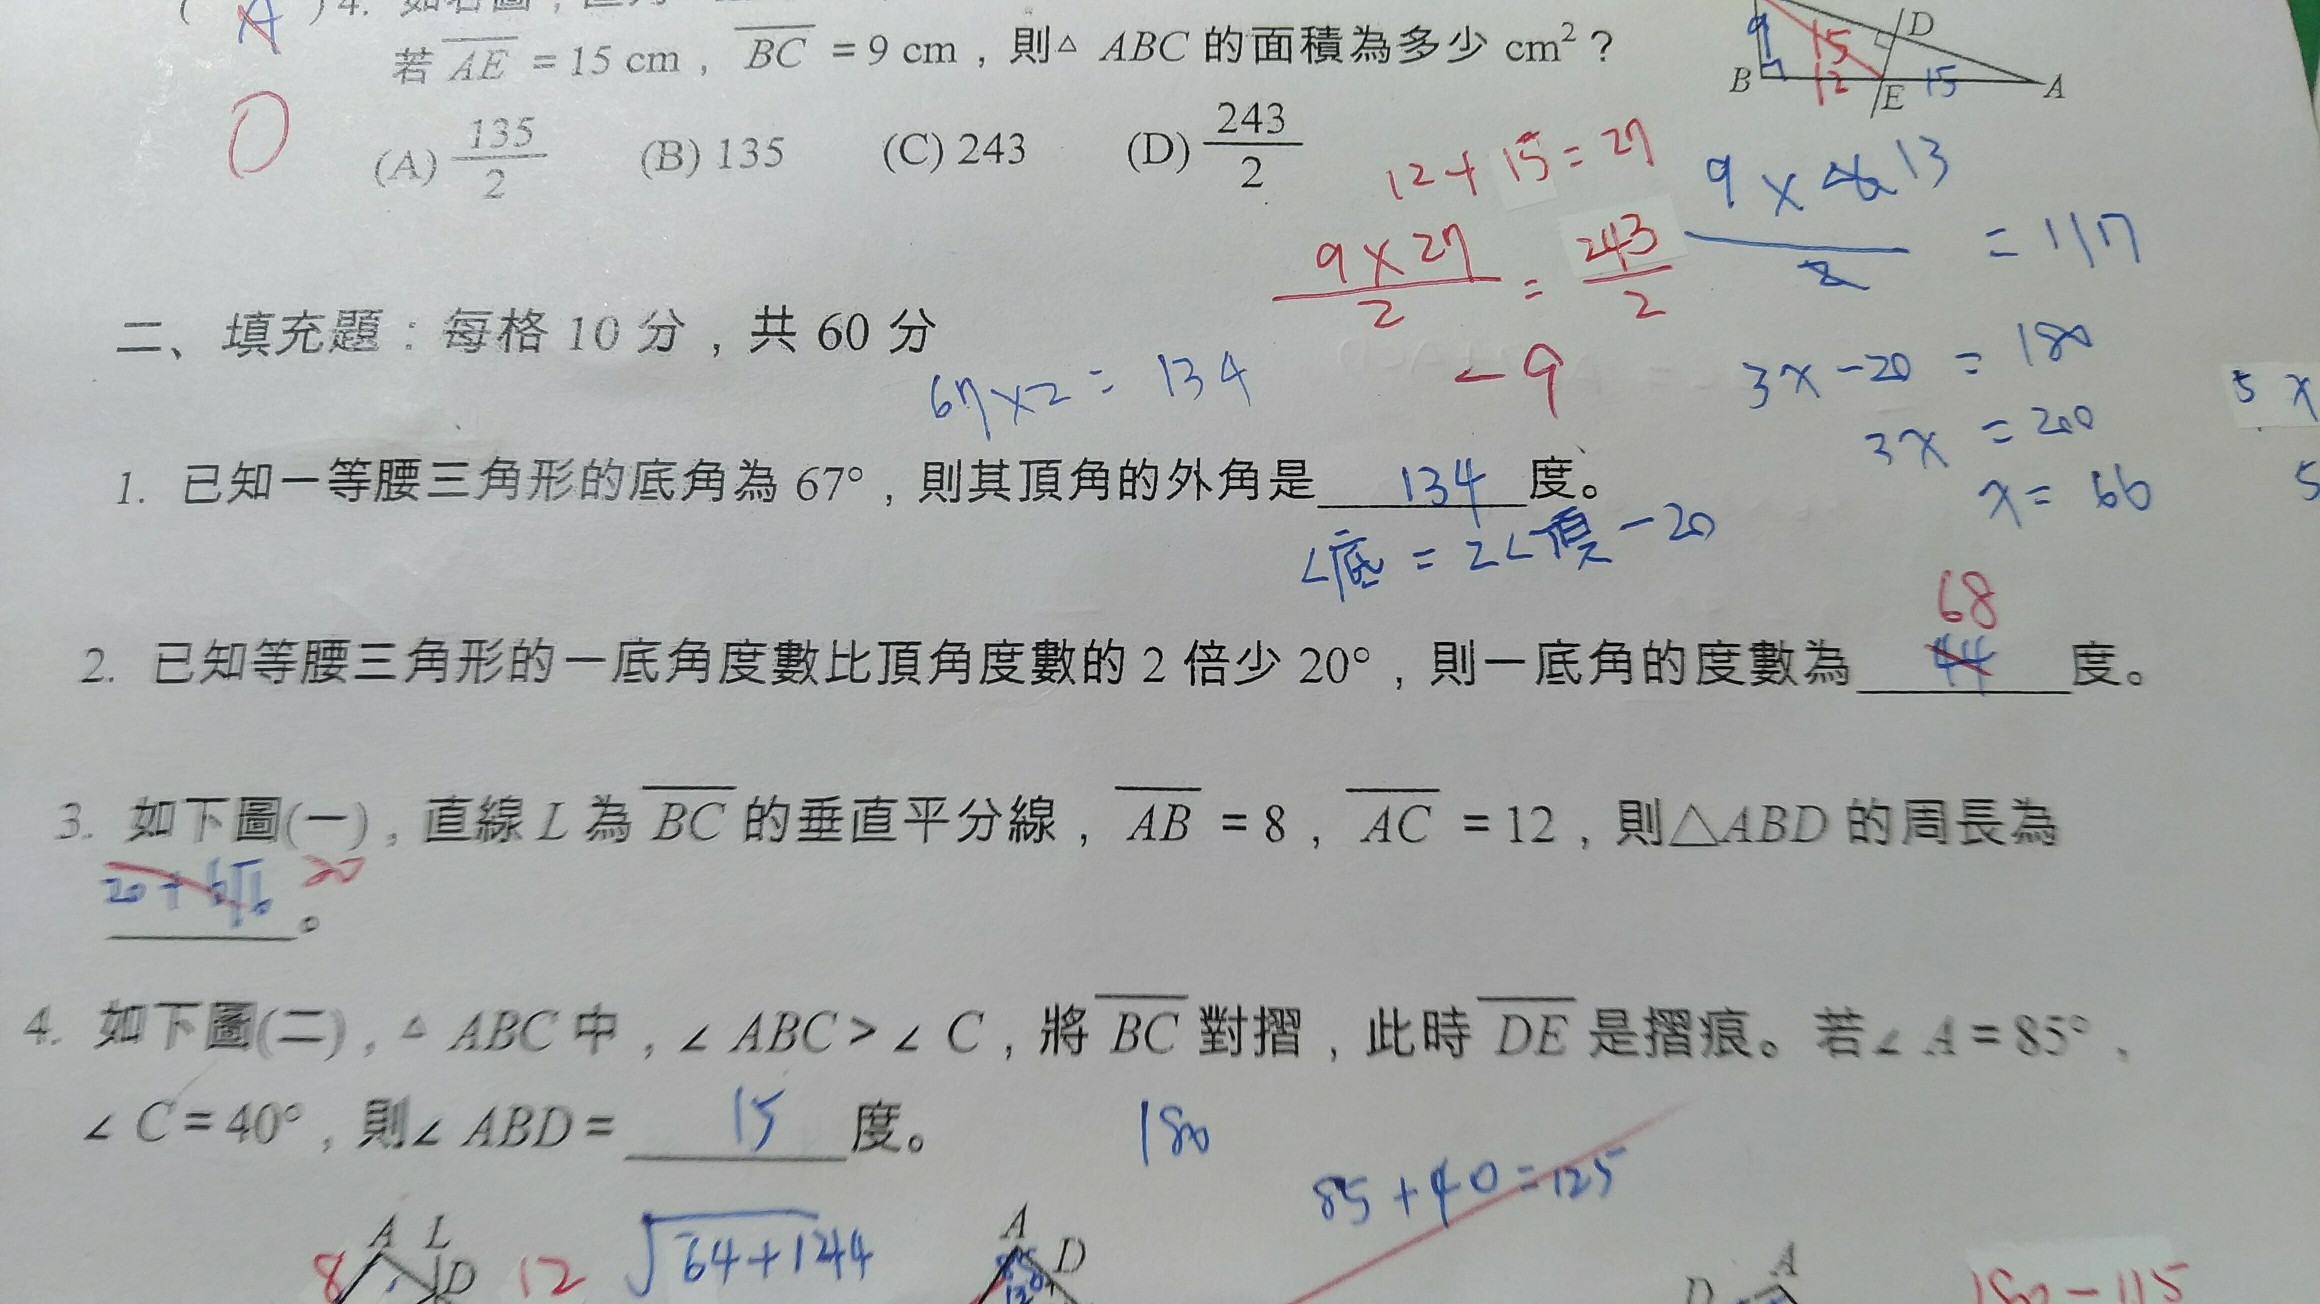 A )4.
若 AE = 15 cm，BC = 9 cm，則△ ABC 的面積為多少 cm²？
9 15 D
B 12 E 15 A
D
(A) 135/2 (B) 135 (C) 243 (D) 243/2
12+15=27
9×27/2 = 243/2
9 × 13/2 = 117
二、填充題：每格 10 分，共 60 分
67×2 = 134
-9
3x-20 = 180
3x = 200
x = 66
5 x
5
1. 已知一等腰三角形的底角為 67°，則其頂角的外角是 134 度。
∠底 = 2∠頂 -20
68
2. 已知等腰三角形的一底角度數比頂角度數的 2 倍少 20°，則一底角的度數為 44 度。
3. 如下圖(一)，直線 L 為 BC 的垂直平分線，AB = 8，AC = 12，則△ABD 的周長為
20 。
4. 如下圖(二)，△ ABC 中，∠ ABC > ∠ C，將 BC 對摺，此時 DE 是摺痕。若∠ A = 85°，
∠ C = 40°，則∠ ABD = 15 度。
180
85+40=125
A L
8 D 12
√64+144
A D
A
D
180-115